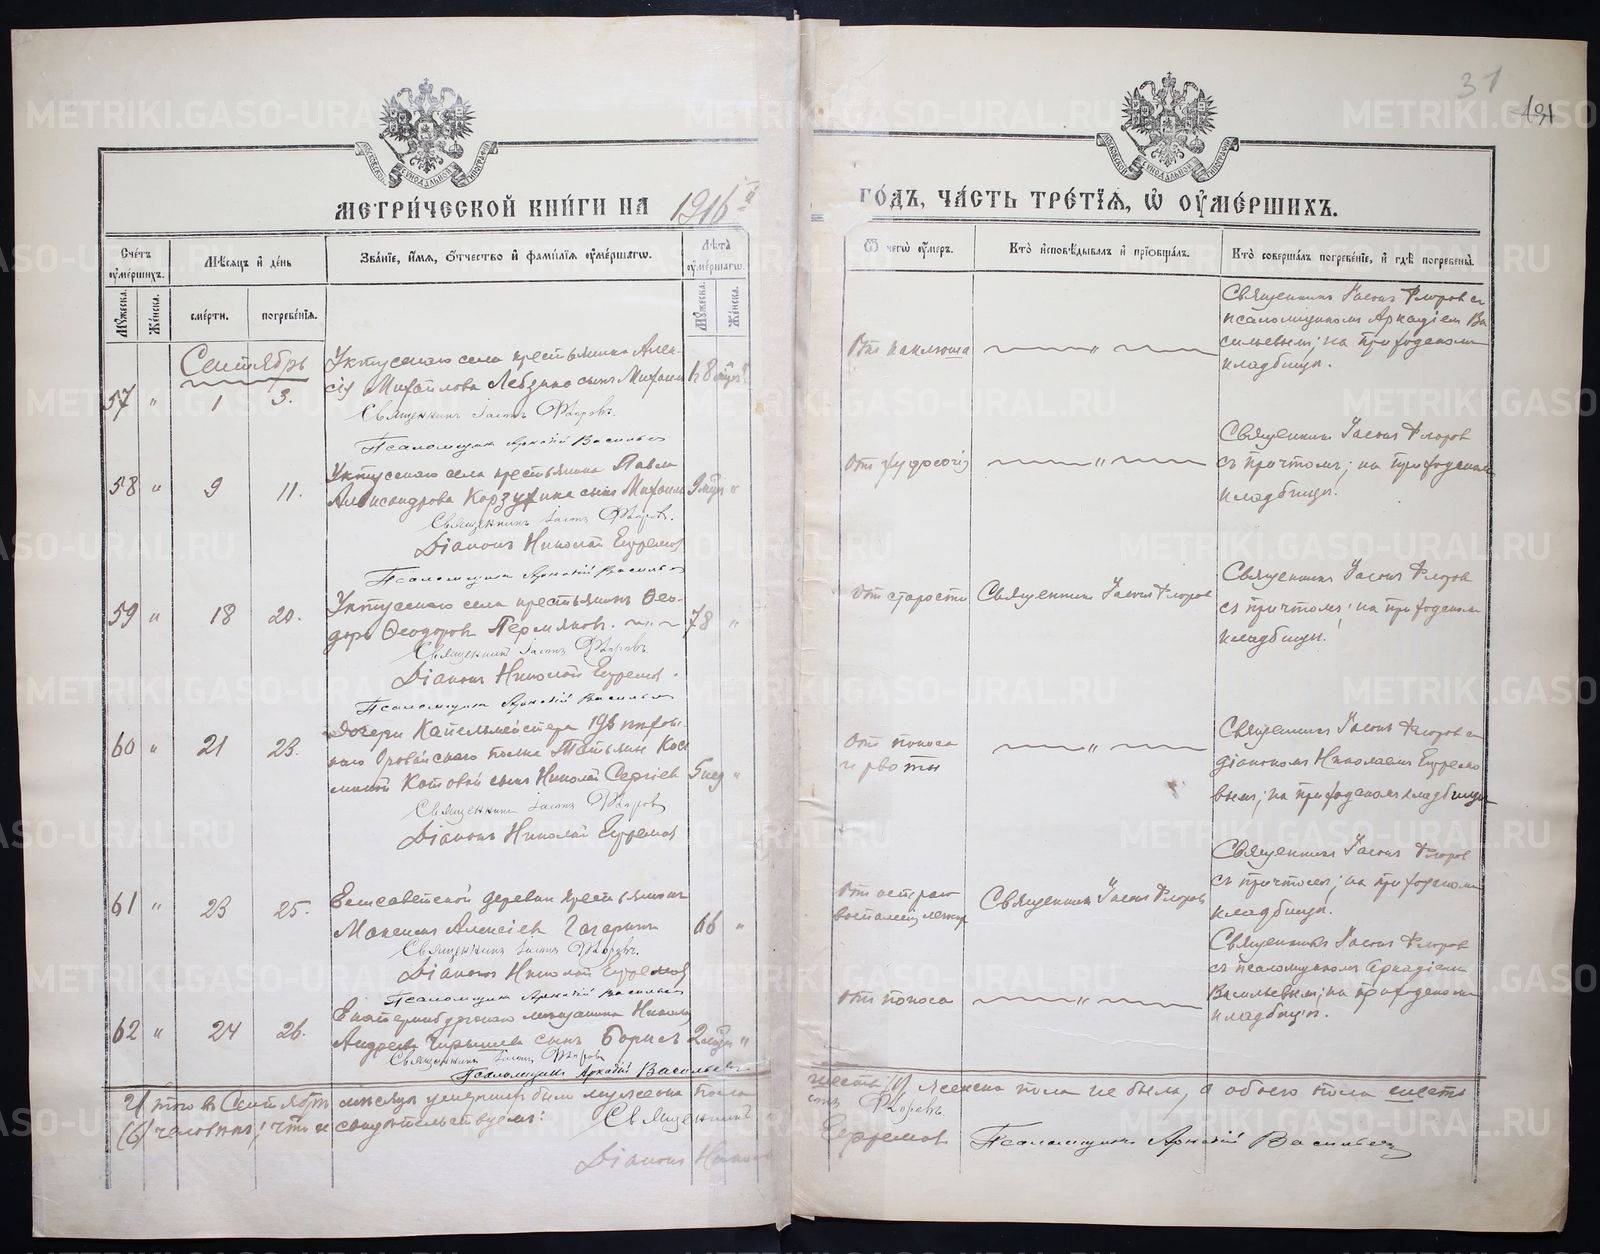 31
191
МЕТРИЧЕСКОЙ КНИГИ НА 1916 й
ГОДЪ, ЧАСТЬ ТРЕТІЯ, Ѽ ОУМЕРШИХЪ.
Счетъ оумершихъ.
Мѣсяцъ и день
Званіе, имя, отчество и фамилія оумершагѡ.
Лѣта оумершагѡ.
Ѿ чегѡ оумеръ.
Кто исповѣдывалъ и пріобщалъ.
Кто совершалъ погребеніе, и гдѣ погребены.
Мужеска.
Женска.
смерти.
погребенія.
Мужеска.
Женска.
Сентябрь
57 " 1 3.
Уктусскаго села крестьянина Алек-
сія Михайлова Лебзина сынъ Михаилъ
Священникъ Іасонъ Флоровъ.
Псаломщикъ Аркадій Васильевъ
Отъ коклюша
Священникъ Іасонъ Флоровъ съ
псаломщикомъ Аркадіем Ва
сильевым; на приходскомъ
кладбищѣ.
58 " 9 11.
Уктусскаго села крестьянина Павла
Александрова Корзухина сынъ Михаилъ
9 мѣс "
Священникъ Іасонъ Флоровъ.
Діаконъ Николай Ефремовъ
Псаломщикъ Аркадій Васильевъ
Священникъ Іасонъ Флоровъ
съ причтомъ; на приходскомъ
кладбищѣ.
59 " 18 20.
Уктусскаго села крестьянинъ Ѳео-
доръ Ѳеодоровъ Пермяковъ.
78 "
Священникъ Іасонъ Флоровъ
Діаконъ Николай Ефремовъ.
Псаломщикъ Аркадій Васильевъ
Отъ старости
Священникъ Іасонъ Флоровъ
Священникъ Іасонъ Флоровъ
съ причтомъ; на приходскомъ
кладбищѣ.
60 " 21 23.
Дочери Капельмейстера 198 пѣхот-
наго полка Татьяны Кос
миной Котовой сынъ Николай Сергіев
5 нед "
Священникъ Іасонъ Флоровъ
Діаконъ Николай Ефремовъ
Отъ поноса
и рвоты
Священникъ Іасонъ Флоровъ съ
діакономъ Николаемъ Ефремо
вымъ; на приходскомъ кладбищѣ
61 " 23 25.
Елисаветской деревни крестьянинъ
Максимъ Алексіев Гагаринъ
66 "
Священникъ Іасонъ Флоровъ.
Діаконъ Николай Ефремовъ
Псаломщикъ Аркадій Васильевъ
Священникъ Іасонъ Флоровъ
Священникъ Іасонъ Флоровъ
съ причтомъ; на приходскомъ
кладбищѣ.
62 " 24 26.
Екатеринбургскаго мѣщанина Николая
Андреева сынъ Борисъ
2 мѣс "
Священникъ Іасонъ Флоровъ
Псаломщикъ Аркадій Васильевъ
Отъ поноса
Священникъ Іасонъ Флоровъ
съ псаломщикомъ Аркадіемъ
Васильевым; на приходскомъ
кладбищѣ.
Итого въ Сентябрѣ мѣсяцѣ умершихъ было мужеска пола шесть
(6) женска пола не было, а обоего пола шесть
(6) человѣкъ; что и свидѣтельствуемъ: Священникъ Іасонъ Флоровъ.
Діаконъ Николай Ефремовъ Псаломщикъ Аркадій Васильевъ
METRIKI.GASO-URAL.RU